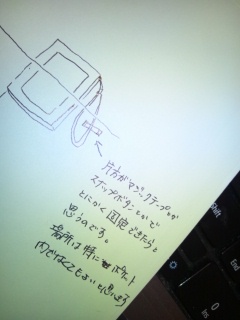 片方がマジックテープか
スナップボタンとかで
とにかく固定できたらと
思うのです。
場所は特に ポケット
内でなくともよいと思います
Shift
Ctrl
Ins